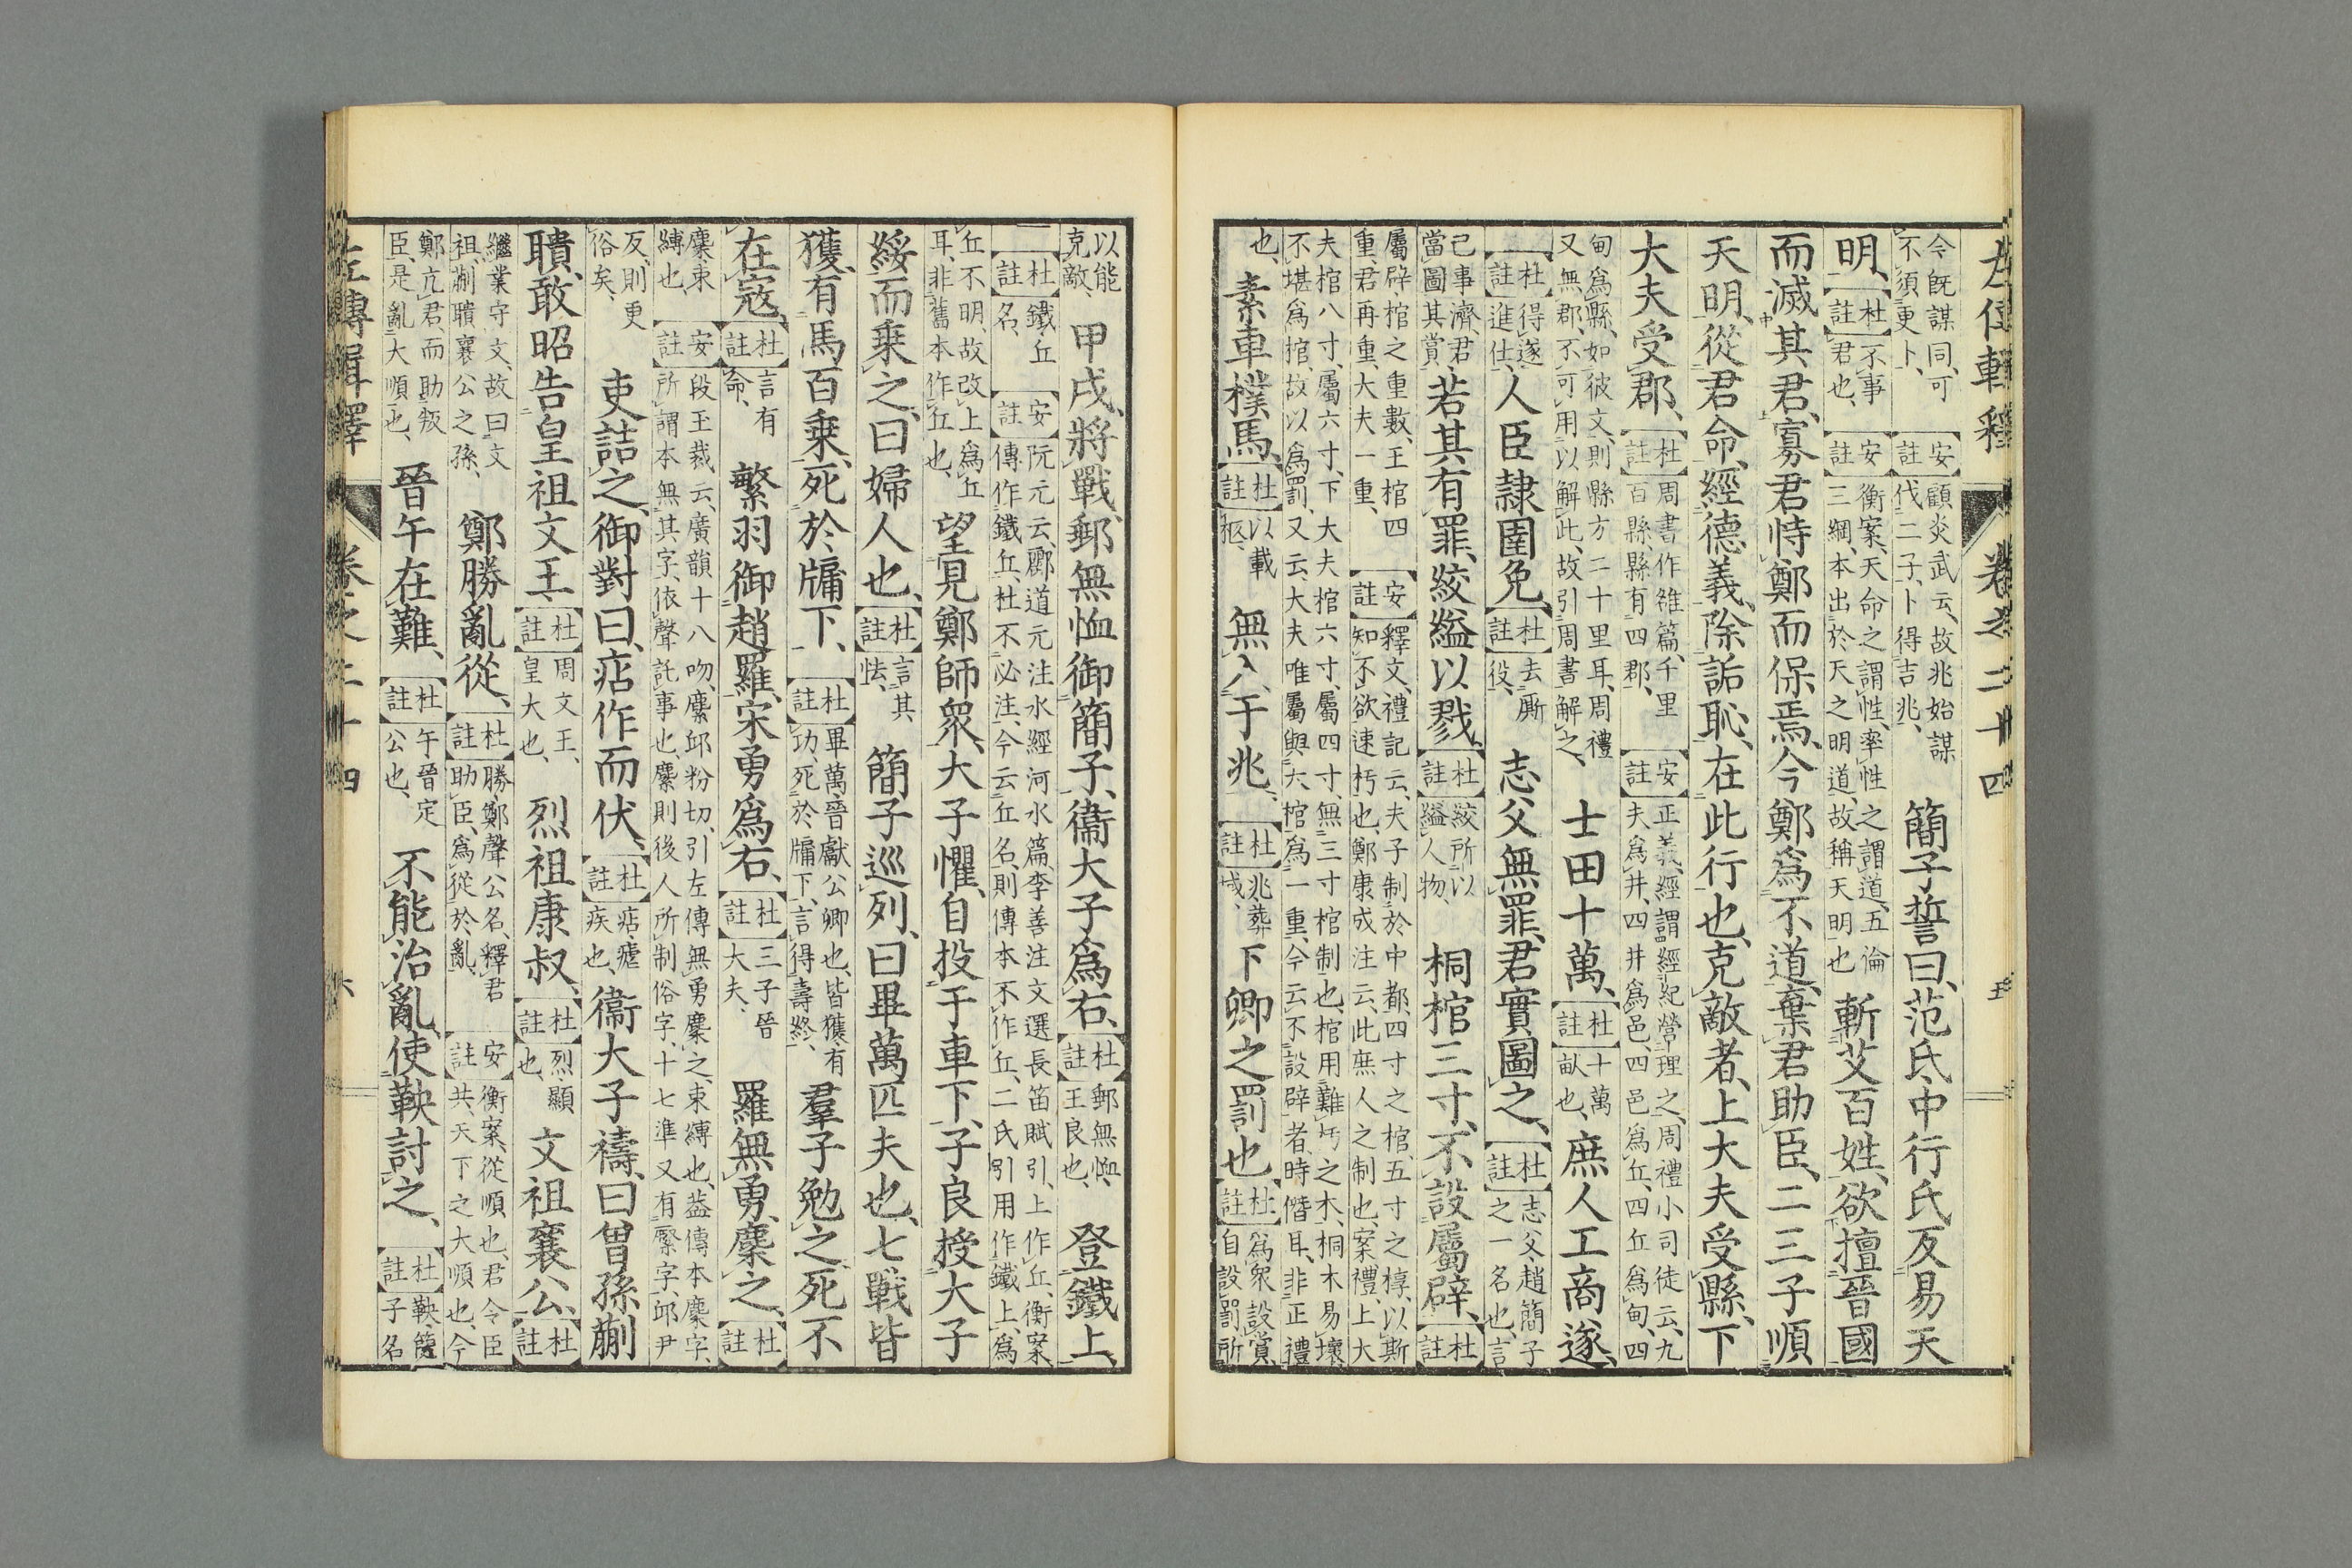 左傳輯釋 卷之二十四 五
今既謀同、可不須更卜、【安註】顧炎武云、故兆始謀代二子、卜得吉兆、簡子誓曰、范氏中行氏反易天
明、【杜註】不事君也、【安註】衡案、天命之謂性、率性之謂道、五倫三綱、本出於天之明道、故稱天明也 斬艾百姓、欲擅晉國
而滅其君、寡君恃鄭而保焉、今鄭爲不道、棄君助臣、二三子順
天明、從君命、經德義、除詬恥、在此行也、克敵者、上大夫受縣、下
大夫受郡、【杜註】周書作雒篇、千里百縣、縣有四郡、【安註】正義、經謂經紀營理之、周禮小司徒云、九夫爲井、四井爲邑、四邑爲丘、四丘爲甸、四
甸爲縣、如彼文、則縣方二十里耳、周禮又無郡、不可用以解此、故引周書解之、士田十萬、【杜註】十萬畝也、庶人工商遂、
【杜註】得遂進仕、人臣隸圉免、【杜註】去厮役、志父無罪、君實圖之、【杜註】志父、趙簡子之一名也、言
己事濟、君當圖其賞、若其有罪、絞縊以戮、【杜註】絞所以縊人物、桐棺三寸、不設屬辟、【杜註】
屬辟、棺之重數、王棺四重、君再重、大夫一重、【安註】釋文、禮記云、夫子制於中都、四寸之棺、五寸之椁、以斯知不欲速朽也、鄭康成注云、此庶人之制也、案禮、上大
夫棺八寸、屬六寸、下大夫棺六寸、屬四寸、無三寸棺制也、棺用難朽之木、桐木易壞、不堪爲棺、故以爲罰、又云、大夫唯屬與大棺爲一重、今云不設辟者、時僭耳、非正禮
也、素車樸馬、【杜註】以載柩、無入于兆、【杜註】兆葬域、下卿之罰也、【杜註】爲衆設賞、自設罰、所
以能克敵、甲戌、將戰、郵無恤御簡子、衞大子爲右、【杜註】郵無恤、王良也、登鐵上、
【杜註】鐵丘名、【安註】阮元云、酈道元注水經河水篇、李善注文選長笛賦引、上作丘、衡案、傳作鐵丘、杜不必注、今云丘名、則傳本不作丘、二氏引用作鐵上、爲
丘不明、故改上爲丘耳、非舊本作丘也、望見鄭師衆、大子懼、自投于車下、子良授大子
綏而乘之、曰婦人也、【杜註】言其怯、簡子巡列、曰畢萬匹夫也、七戰皆
獲、有馬百乘、死於牖下、【杜註】畢萬、晉獻公卿也、皆獲、有功、死於牖下、言得壽終、羣子勉之、死不
在寇、【杜註】言有命、繁羽御趙羅、宋勇爲右、【杜註】三子晉大夫、羅無勇、麇之、【杜註】
麇、束縛也、【安註】段玉裁云、廣韻十八吻、麇邱粉切、引左傳無勇麇之、束縛也、葢傳本麇字、所謂本無其字、依聲託事也、麇則後人所制俗字、十七準又有麏字、邱尹
反、則更俗矣、吏詰之、御對曰、痁作而伏、【杜註】痁、瘧疾也、衞大子禱、曰曾孫蒯
聵、敢昭告皇祖文王、【杜註】周文王、皇大也、烈祖康叔、【杜註】烈、顯也、文祖襄公、【杜註】
繼業守文、故曰文祖、蒯聵襄公之孫、鄭勝亂從、【杜註】勝、鄭聲公名、釋君助臣、爲從於亂、【安註】衡案、從順也、君令臣共、天下之大順也、今
鄭亢君、而助叛臣、是亂大順也、晉午在難、【杜註】午、晉定公也、不能治亂、使鞅討之、【杜註】鞅、簡子名
左傳輯釋 卷之二十四 六